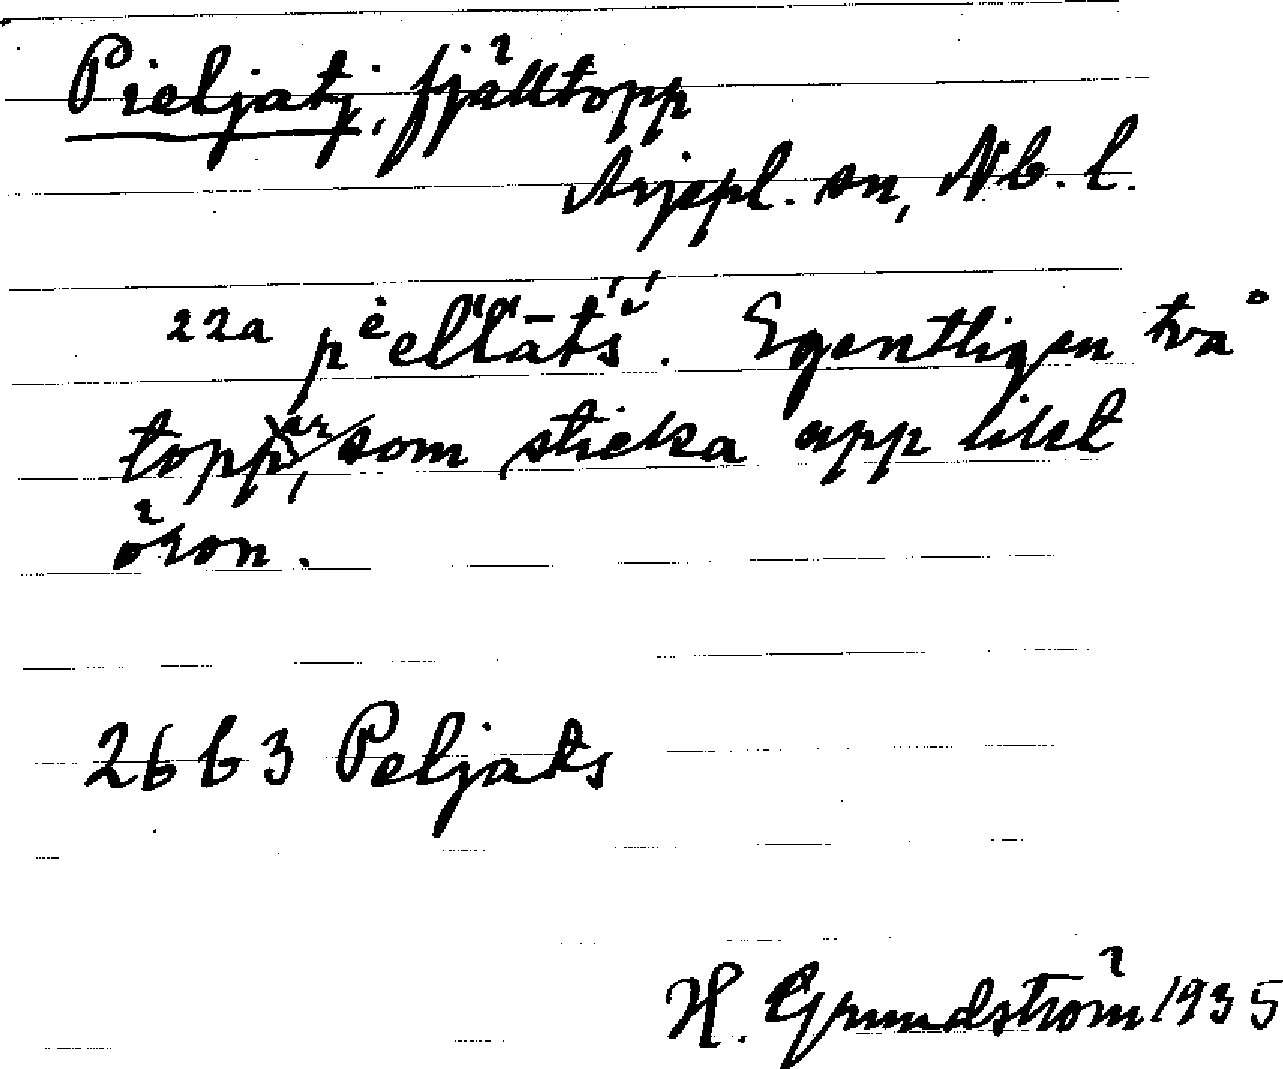 Pieljatj, fjälltopp
Arjepl. sn, Nb. l.
22a . Egentligen två
toppar, som sticka upp likt
öron.
2663 Peljats
H. Grundström 1935